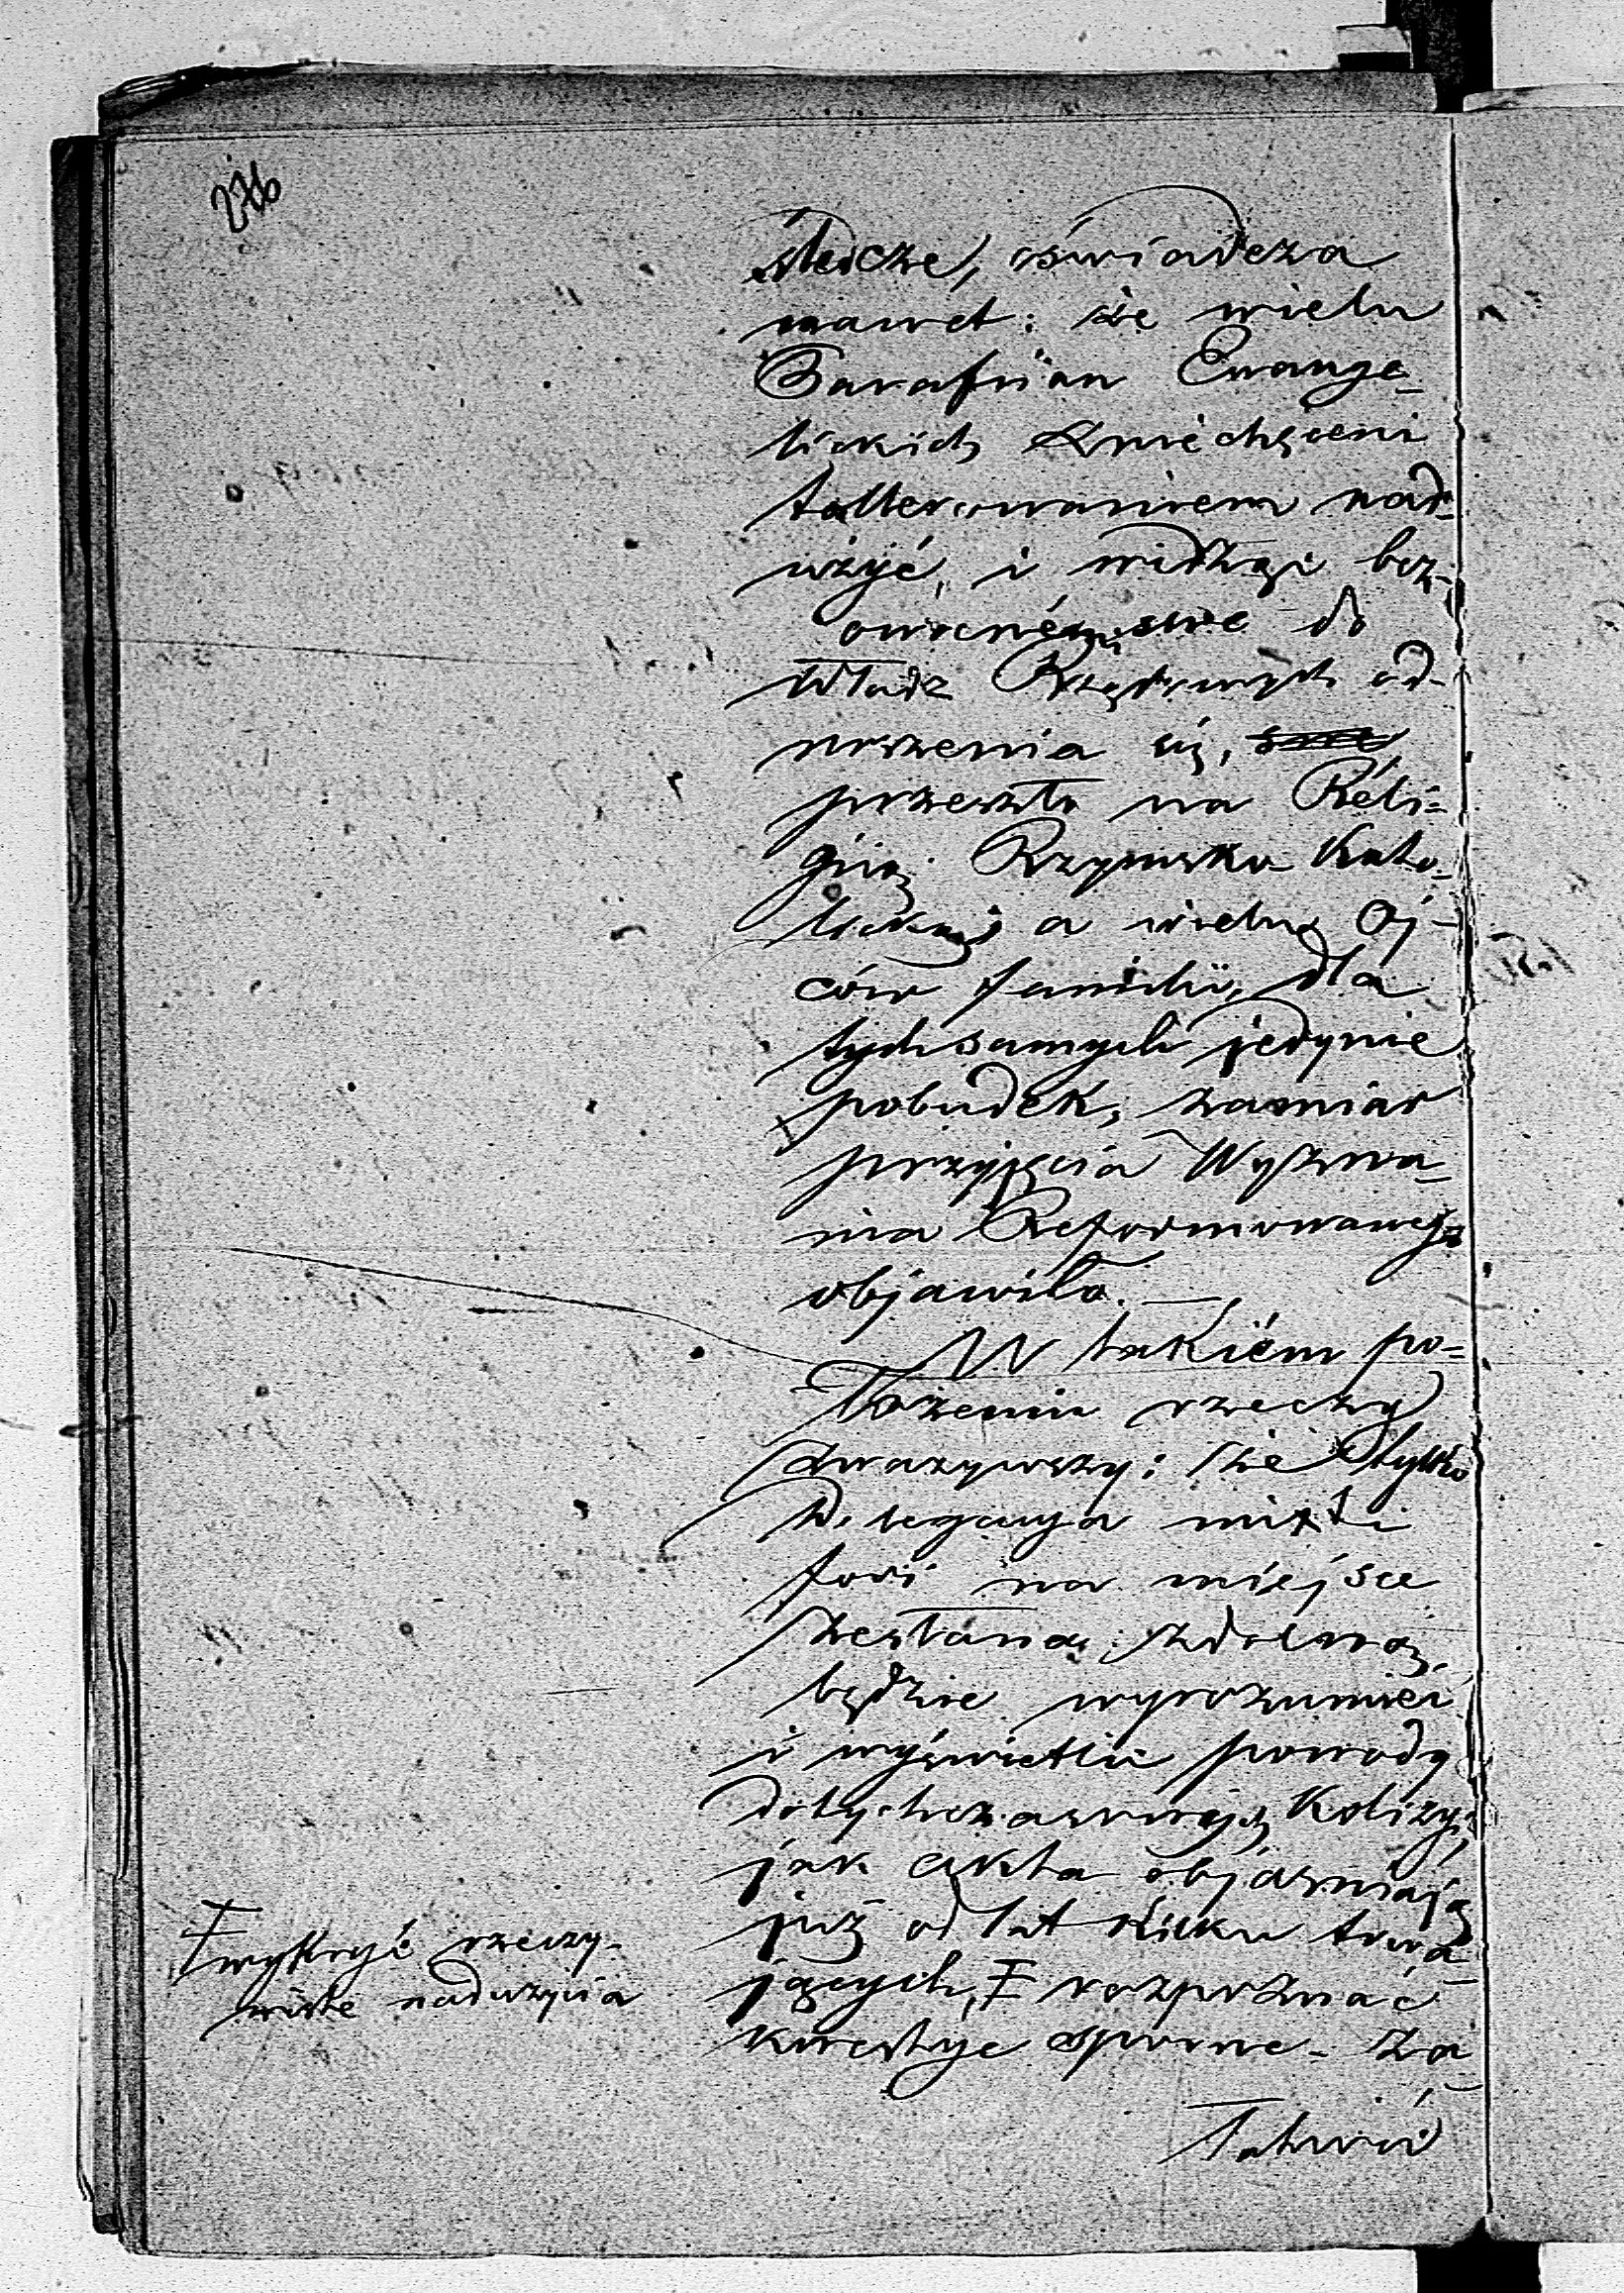 276
śledcze, oświadcza
nawet: że wielu
Parafian Ewange-
lickich zniechęceni
tollerowaniem nad-
użyć, i widząc bez-
owocném swe do
Władz Rządowych od-
noszenia się,
przeszło na Réli-
gią Rzymsko Kato-
licką, a wielu Oj-
ców familii, dla
tychsamych jedynie
pobudek, zamiar
przyjęcia Wyzna-
nia Reformowanego
objawiło. —
W takiém po-
łożeniu rzeczy
zważywszy: że tylko
Delegacya mixti
fori na miejsce
zesłana, zdolną
będzie wyrozumieć
i wyświetlić powody
dotychczasowych Kolizyi,
jak akta objaśniają
już od lat kilku trwa-
jących, Ŧ rozpoznać
kwestye sporne - za
łatwić
Ŧ wykryć rzeczy-
wiste nadużycia